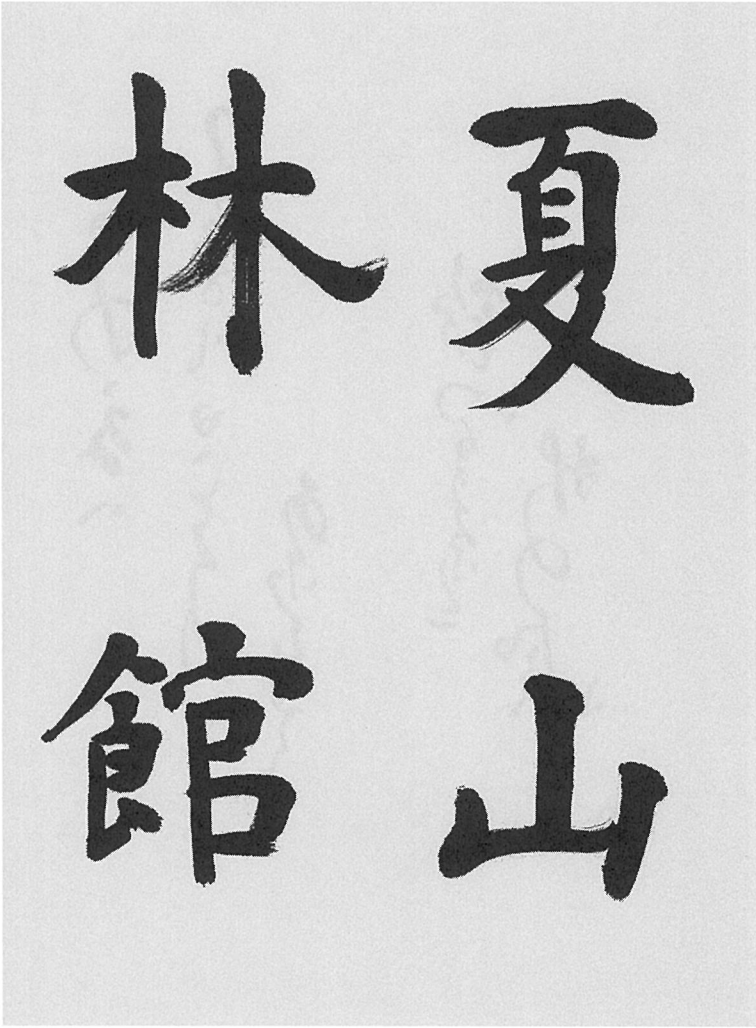 夏山
林館